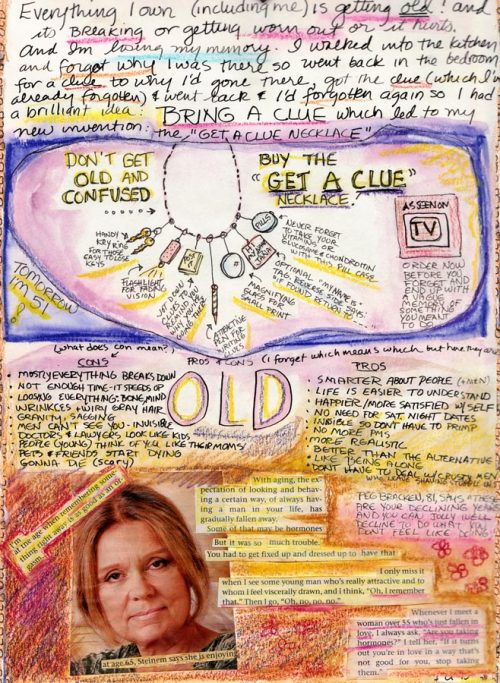 Everything I own (including me) is getting old! and
its BREAKING or getting worn out or it hurts.
and I'm losing my memory. I walked into the kitchen
and forgot why I was there so went back in the bedroom
for a clue to why I'd gone there, got the clue (which I'd
already forgotten) & went back & I'd forgotten again so I had
a brilliant idea: BRING A CLUE which led to my
new invention: the "GET A CLUE NECKLACE"
DON'T GET
OLD AND
CONFUSED
BUY THE
"GET A CLUE"
NECKLACE.
AS SEEN ON
TV
ORDER NOW
BEFORE YOU
FORGET AND
END UP WITH
A VAGUE
MEMORY OF
SOMETHING
YOU MEANT
TO DO
HANDY
KEY RING
FOR THOSE
EASY TO LOSE
KEYS
FLASHLIGHT
FOR FADING
VISION
JOT DOWN
WHERE
YOU'RE
GOING
ATTRACTIVE
PEN FOR
WRITING
CLUES
MAGNIFYING
GLASS FOR
SMALL PRINT
OPTIONAL "MY NAME IS"
TAG. REVERSE SIDE SAYS
"IF FOUND RETURN TO"
PILLS
NEVER FORGET
TO TAKE YOUR
VITAMINS OR
GLUCOSAMINE & CHONDROITIN
WITH THIS PILL CASE
MY NAME IS
TOMORROW
I'm 51!
(what does con mean?)
PROS & CONS (I forget which means which but here they are)
CONS
• MOSTLY EVERYTHING BREAKS DOWN
• NOT ENOUGH TIME - IT SPEEDS UP
• LOOSING EVERYTHING: BONE, MIND
• WRINKLES + WIRY GRAY HAIR
• GRAVITY, SAGGING
• MEN CAN'T SEE YOU - INVISIBLE
• DOCTORS & LAWYERS LOOK LIKE KIDS
• PEOPLE (YOUNG) THINK OF YOU LIKE THEIR MOMS
• PETS & FRIENDS START DYING
• GONNA DIE (SCARY)
OLD
PROS
• SMARTER ABOUT PEOPLE (+ MEN)
• LIFE IS EASIER TO UNDERSTAND
• HAPPIER/MORE SATISFIED W/SELF
• NO NEED FOR SAT. NIGHT DATE
• INVISIBLE SO DON'T HAVE TO PRIMP
• NO MORE PMS
• MORE REALISTIC
• BETTER THAN THE ALTERNATIVE
• LIKE BEING ALONE
• DON'T HAVE TO DEAL W/CRUSTY MEN
WHO LEAVE SHAVING STUBBLE
PEG BRACKEN, 81, SAYS "THESE
ARE YOUR DECLINING YEARS
AND YOU CAN JOLLY WELL
DECLINE TO DO WHAT YOU
DON'T FEEL LIKE DOING"
I'm
at the age when remembering some-
thing right away is as good as an or-
gasm.
With aging, the ex-
pectation of looking and behav-
ing a certain way, of always hav-
ing a man in your life, has
gradually fallen away.
Some of that may be hormones
But it was so much trouble.
You had to get fixed up and dressed up to have that
I only miss it
when I see some young man who's really attractive and to
whom I feel viscerally drawn, and I think, "Oh, I remember
that." Then I go, "Oh, no, no, no."
Whenever I meet a
woman over 55 who's just fallen in
love, I always ask, "Are you taking
hormones?" I tell her, "If it turns
out you're in love in a way that's
not good for you, stop taking
them."
at age 65, Steinem says she is enjoying